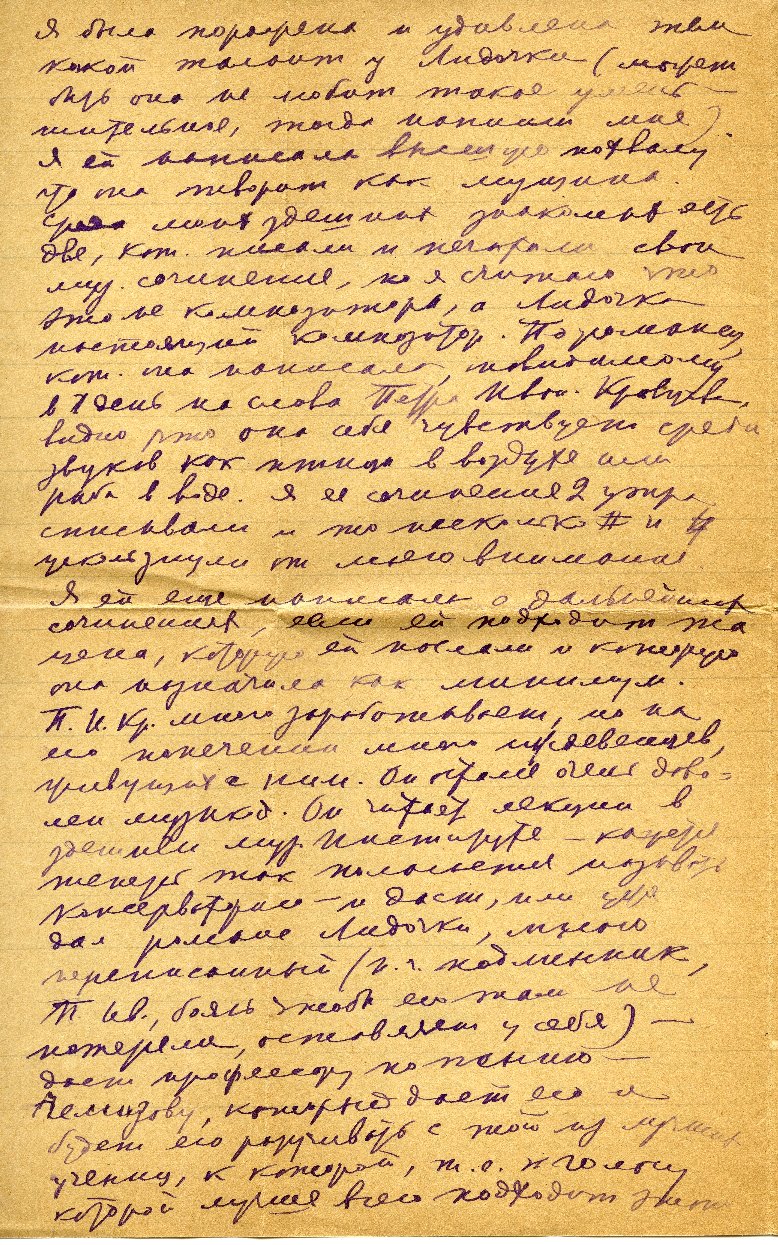 Я была поражена и удивлена тем
какой талант у Лидочки (может
быть она не любит такое умень-
шительное, тогда напиши мне)
Я ей написала высшую похвалу
что она творит как мужчина.
Среди моих здешних знакомых есть
две, кот. писали и печатали свои
муз. сочинения, но я считаю что
это не композитора, а Лидочка
настоящий композитор. По романсу,
кот. она написала, повидимому
в 1 день на слова Петра Иван.
видно что она себя чувствует среди
звуков как птица в воздухе или
рыба в воде. Я ее сочинение 2 утра
списывали и то несколько # и ♮
ускользнули от моего внимания.
Я ей еще написала о дальнейших
сочинениях, если ей подходит та
цена, которую ей послали и которую
она назначила как минимум.
П. И. Кр. много зарабатывает, но на
его попечении много иждевенцев,
живущих с ним. Он остался очень дово-
лен музыкой. Он читает лекции в
здешнем муз. Институте - кажется
теперь так полагается называть
консерваторию - и даст, или уже
дал романс Лидочки, мною
переписанный (п. ч. подлинник,
П Ив., боясь чтобы его там не
потеряли, оставляет у себя) -
даст профессору по пению -
который даст его и
будет его разучивать с той из лучших
учениц, к которой, т. е. к голосу
которой лучше всего подходит этот